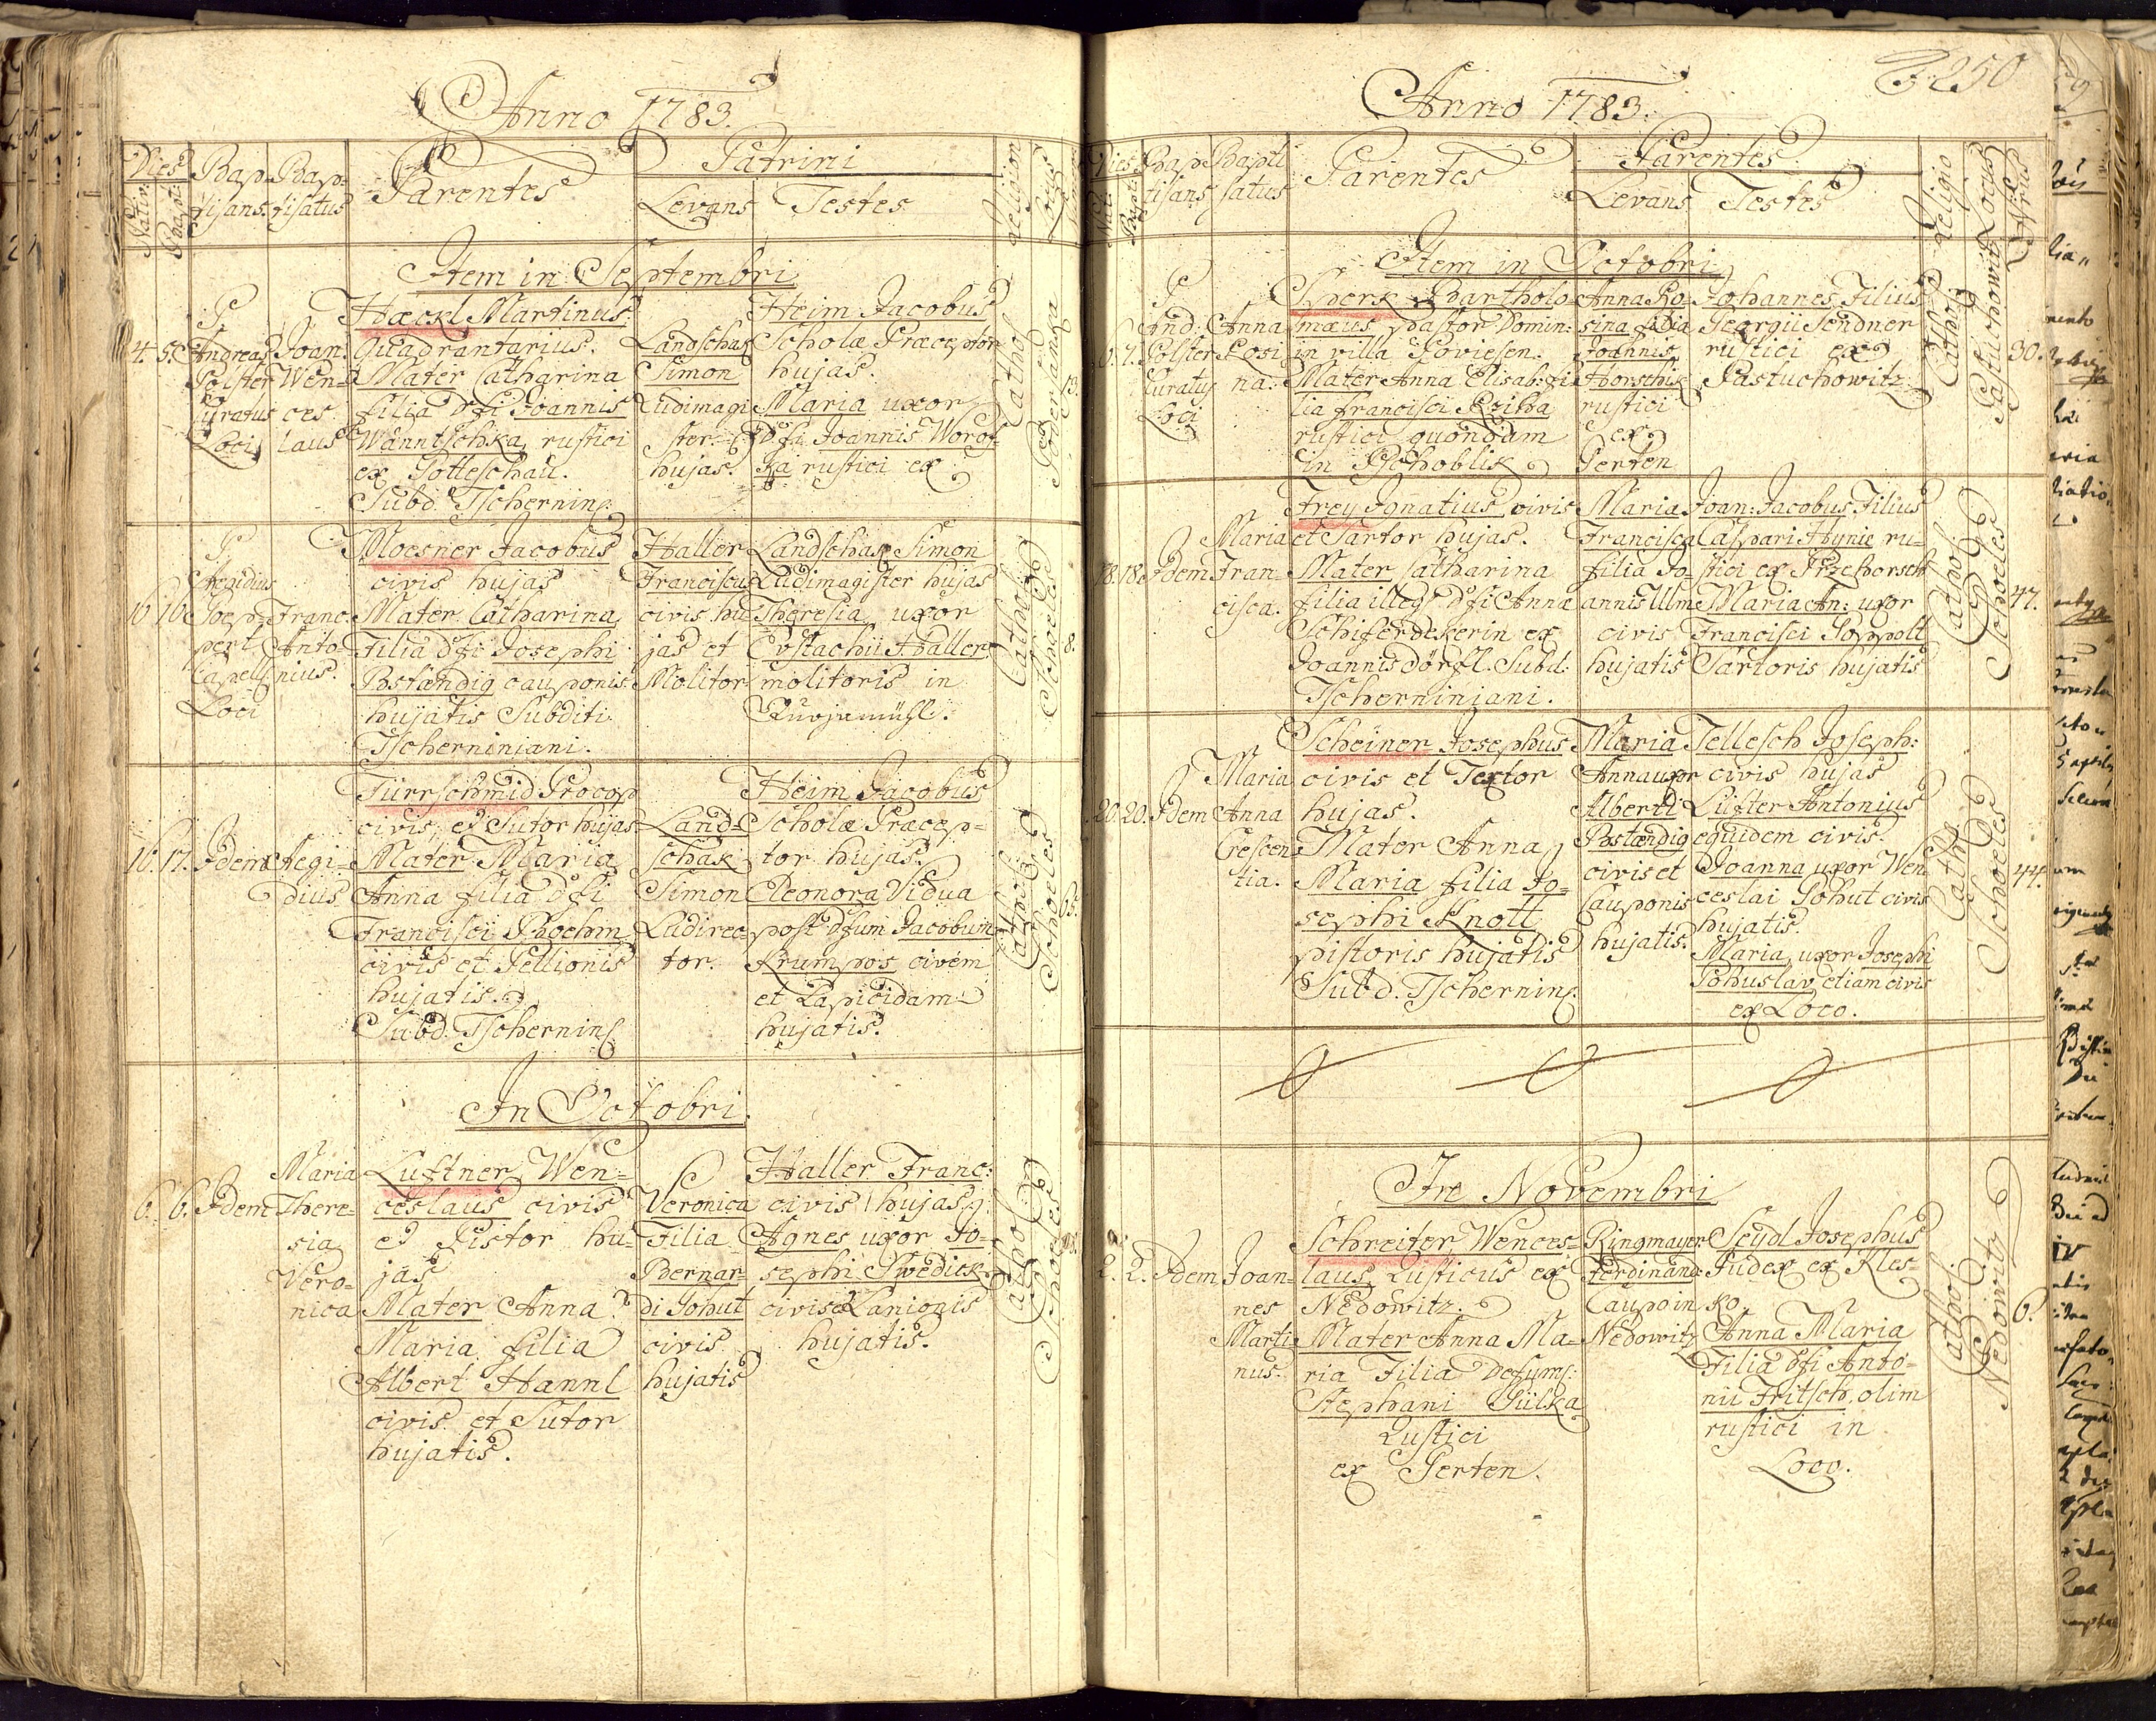 Anno 1783.
Dies
Nativ.
Bapt:
Bap-
tisans.
Bap-
tisatus
Parentes
Patrini
Levans
Testes
Religion
Locus
Item in Septembri
4.
5.
P.
Andreas
Polster
Curatus
Loci
Joan.
Wen-
ces
laus
Hæckl Martinus
Quadrantarius.
Mater Catharina
filia dfi Joannis
Wanntschka rustici
ex Potleschau.
Subd. Tschernin:
Landschak
Simon
Ludimagi-
ster
hujas.
Heim Jacobus
Scholæ Præceptor
hujas.
Maria uxor
dfi Joannis Worof-
ka rustici ex
Cathol
Poderßanka
13.
16
16
P.
Aegidius
Joep-
pert
Capell
Loci
Franc.
Anto-
nius.
Moesner Jacobus
civis hujas
Mater Catharina
Filia dfi Josephi
Bstændig cauponis
hujatis Subditi
Tscherniniani.
Haller
Franciscus
civis hu-
jas et
Molitor
Landschak Simon
Ludimagister hujas
Theresia uxor
Eustachii Haller
molitoris in
Cathol
Schoeles
8.
16.
17.
Idem
Aegi-
dius
Türrschmid Procop
civis, et Sutor hujas
Mater Maria
Anna filia dfi
Francisci Boehm
civis et Pellionis
hujatis.
Subd. Tschernin:
Land-
schak
Simon
Ludirec-
tor.
Heim Jacobus
Scholæ Præcep-
tor hujas.
Eleonora Vidua
post dfum Jacobum
Krumpos civem
et Lapicidam
hujatis.
Cathol
Schoeles
95.
In Octobri.
6.
6.
Idem
Maria
There-
sia
Vero-
nica
Luftner Wen-
ceslaus civis
et Pistor hu-
jas
Mater Anna
Maria filia
Albert Hannl
civis et Sutor
hujatis.
Veronica
Filia
Bernar-
di Pohut
civis
hujatis
Haller Franc:
civis hujas.
Agnes uxor Jo-
sephi Swedick
civis Lanionis
hujatis.
Cathol
Schoeles
250
Anno 1783.
Dies
Nat:
Bapt:
Bap-
tisans
Bapti
satus
Parentes
Parentes
Levans
Testes
Religio
Locus
Nrus
Item in Octobri
6.
7.
P
And:
Polster
Curatus
Loci
Anna
Rosi
na:
Sperk Bartholo
mæus pastor Domin:
in villa Poviesen.
Mater Anna Elisab: fi
lia francisci Rziha
rustici quondam
in Pschoblik
Anna Ro-
sina filia
Joannis
Horschik
rustici
ex
Perten
Johannes Filius
Georgii Sendner
rustici ex
Pastuchowitz.
Cathol
Pastuchowitz
30.
18.
18.
Idem
Maria
Fran-
cisca.
Frey Ignatius civis
et Sartor hujas.
Mater Catharina
filia illeg: dfi Anna
Schiferdekerin ex
Joannisdörfl. Subd.
Tscherniniani.
Maria
Francisca
filia Jo-
annis Ulm
civis
hujatis
Joan: Jacobus Filius
Caspari Hynie ru-
stici ex Przehorsch
Maria An: uxor
Francisci Poppolt
Sartoris hujatis
Cathol
Schoeles
47.
20.
20.
Idem
Maria
Anna
Crescen-
tia.
Scheiner Josephus
civis et Textor
hujas.
Mater Anna
Maria filia Jo-
sephi Knoll
pistoris hujatis
Subd. Tschernin:
Maria
Anna uxor
Alberti
Bstændig
civis et
Cauponis
hujatis.
Tellesch Joseph:
civis hujas
Lüfter Antonius
equidem civis.
Joanna uxor Wen
ceslai Pohut civis
hujatis.
Maria uxor Josephi
Pohuslav etiam civis
ex Loco.
Cath
Schoeles
44.
In Novembri
2.
2.
Idem
Joan-
nes
Marti-
nus.
Schreiter Wences-
laus Rusticus ex
Nedowitz.
Mater Anna Ma-
ria Filia Defunc:
Stephani Sülka
Rustici
ex Perten.
Ringmayer
Ferdinand:
Caupo in
Nedowitz
Seydl Josephus
Judex ex Kles-
ko.
Anna Maria
Filia dfi Anto-
nii Fritsch olim
rustici in
Loco.
Cathol
Nedowitz
6.